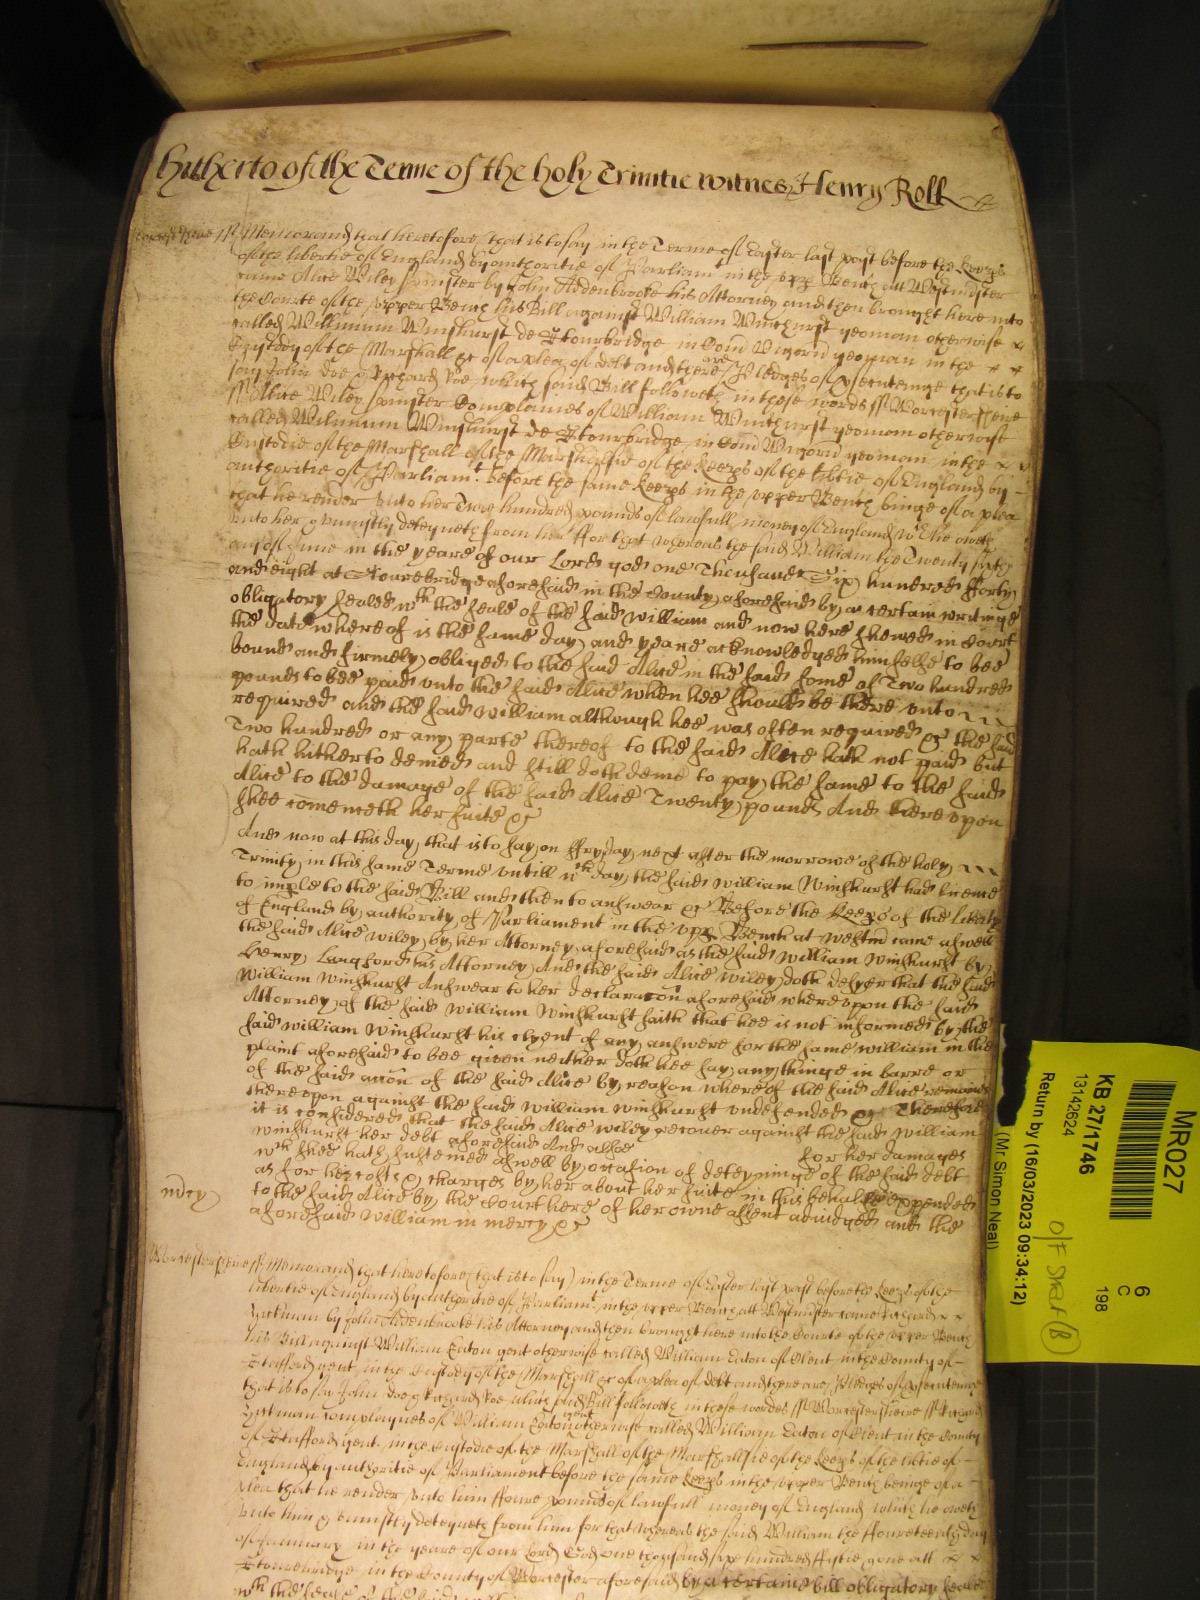 hitherto of the Terme of the holy Trinitie witnes Henry Roll
Worcestershire ss Memorand that heretofore that is to say in the Terme of Easter last past before the Keeps
of the libertie of England by authoritie of Parliam in the upp Bench att Westminster
came Alice Wiley spinster by John Addenbrooke his Attorney and then brought here into
the Courte of the upper Bench his Bill against William Winshurst yeoman otherwise
called Willmum Winshurst de Stourbridge in Com Wigorn yeoman in the
Custody of the Marshall &c of a plea of debt and there are Pledges of prsecuteinge that is to
say John doe & Richard Roe which said Bill followeth in these words ss Worcestershire
ss Alice Wiley spinster Complaines of William Winshurst yeoman otherwise
called Willmum Winshurst de Stourbridge in Com Wigorn yeoman in the
Custodie of the Marshall of the Marshalsie of the Keeps of the libtie of England by
authoritie of Parliamt before the same Keeps in the upper Bench beinge of a plea
that he render unto her Two hundred pounds of lawfull money of England wch he oweth
unto her & uniustly deteyneth from her ffor that whereas the said William the Twenty sixth
day of June in the yeare of our Lord god one Thousand Six hundred fforty
and eight at Stourebridge aforesaid in the County aforesaid by a certain writinge
obligatory sealed wth the seale of the said william and now here shewed in Court
the date whereof is the same day and yeare acknowledged himselfe to bee
bound and firmely obliged to the said Alice in the said some of Two hundred
pounds to bee paid unto the said Alice when hee should be there unto
required and the said william although hee was often required &c the said
Two hundred or any parte thereof to the said Alice hath not paid but
hath hitherto denied and still doth denie to pay the same to the said
Alice to the damage of the said Alice Twenty pounds And thereupon
shee comeneth her suite &c
And now at this day that is to say on ffryday next after the morrowe of the holy
Trinity in this same Terme untill wch day the said william Winshurst had licence
to imple to the said Bill and then to answear &c Before the Keeps of the liberty
of England by authority of Parliament in the upp Bench at westmr came aswell
the said Alice wiley by her Attorney aforesaid as the said William Winshurst by
Henry Langford his Attorney And the said Alice wiley doth desyer that the said
William Winshurst Answear to her declaracon aforesaid whereupon the said
Attorney of the said William Winshurst saith that hee is not informed by the
said William Winshurst his clyent of any answere for the same William in the
plaint aforesaid to bee given neither doth hee say any thinge in barre or
of the said accon of the said Alice by reason whereof the said Alice remaines
thereupon against the said William Winshurst undefended &c Therefore
it is considered that the said Alice wiley recover against the said William
Winshurst her debt aforesaid And allsoe for her damages
wch shee hath susteined aswell by occasion of deteyninge of the said debt
as for her costs & charges by her about her suite in this behalfe expended
to the said Alice by the Court here of her owne assent adiudged and the
mercy aforesaid William in mercy &c
Worcestershire ss Memorand that heretofore (that is to say) in the Terme of Easter last past before the Keeps of the
libertie of England by authoritie of Parliamt in the upper Bench att Westminster came Richard
by John Addenbrooke his Attorney and then brought here into the Courte of the upper Bench
his Bill against William Eaton gent otherwise called William Eaton of Clent in the County of
Stafford gent in the Custody of the Marshall &c of a plea of debt and there are Pledges of prsecuteinge
that is to say John doe & Richard Roe which said Bill followeth in these wordes ss Worcestershiere ss Richard
complaynes of William Eaton gent otherwise called William Eaton of Clent in the County
of Stafford gent in the Custodie of the Marshall of the Marshallsie of the Keeps of the libtie of
England by authoritie of Parliament before the same Keeps in the upper Bench beinge of a
plea that he render unto him ffoure pounds of lawfull money of England which he oweth
unto him & uniustly deteyneth from him for that whereas the said William the ffoureteenth day
of January in the yeare of our Lord God one thousand six hundred ffiftie att
Stourebridge in the County of Worcester aforesaid by a certaine bill obligatory sealed
wth the seale of the said
MR027
KB 27/1746
13142624
Return by (16/03/2023 09:34:12)
(Mr Simon Neal)
6
C
198